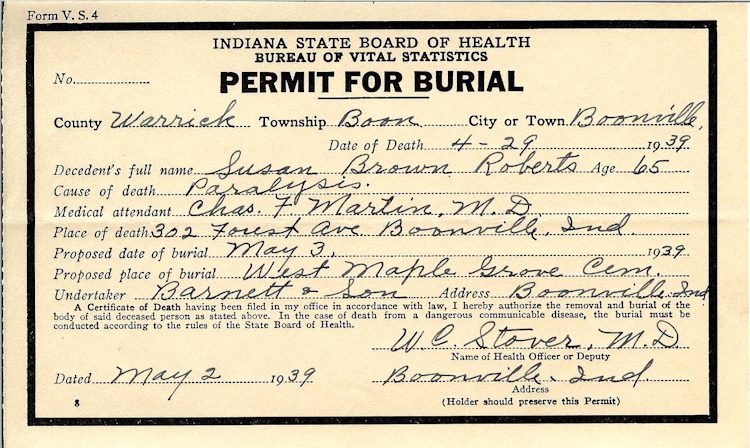 Form V. S. 4
INDIANA STATE BOARD OF HEALTH
BUREAU OF VITAL STATISTICS
No.
PERMIT FOR BURIAL
County Warrick Township Boon City or Town Boonville,
Date of Death 4-29 1939
Decedent's full name Susan Brown Roberts Age 65
Cause of death Paralysis.
Medical attendant Chas. F. Martin, M.D.
Place of death 302 Forest Ave Boonville, Ind.
Proposed date of burial May 3, 1939
Proposed place of burial West Maple Grove Cem.
Undertaker Barnett & Son Address Boonville Ind
A Certificate of Death having been filed in my office in accordance with law, I hereby authorize the removal and burial of the
body of said deceased person as stated above. In the case of death from a dangerous communicable disease, the burial must be
conducted according to the rules of the State Board of Health.
W. C. Stover, M.D.
Name of Health Officer or Deputy
Dated May 2 1939 Boonville, Ind.
Address
8 (Holder should preserve this Permit)